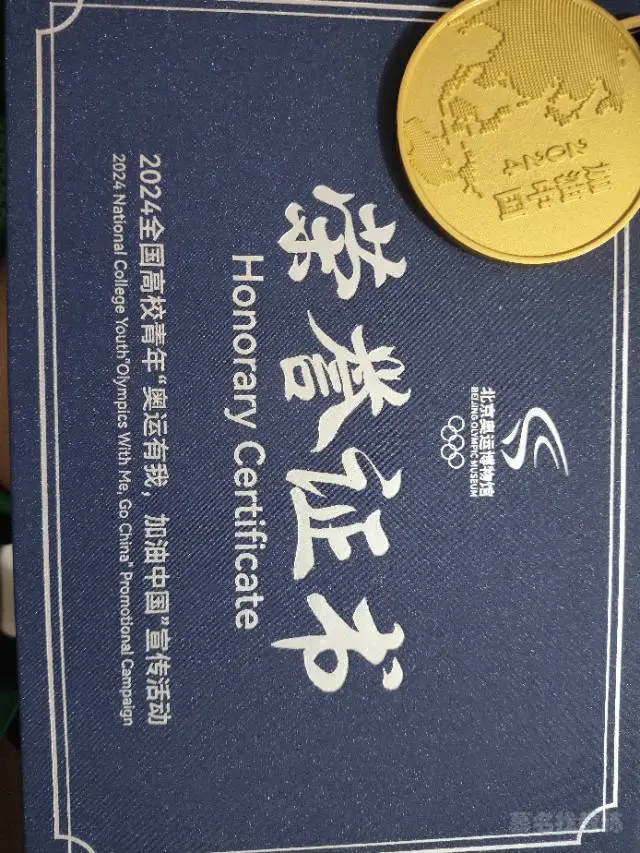 加油中国
2024
北京奥运博物馆
BEIJING OLYMPIC MUSEUM
荣誉证书
Honorary Certificate
2024全国高校青年“奥运有我，加油中国”宣传活动
2024 National College Youth"Olympics With Me, Go China" Promotional Campaign